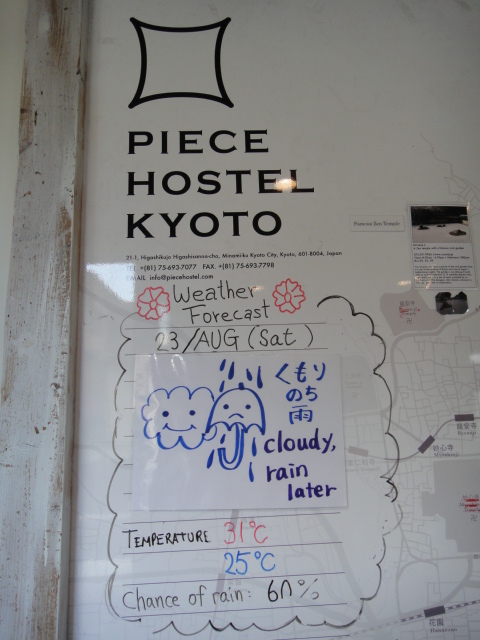 PIECE
HOSTEL
KYOTO
21-1, Higashikujo Higashisanno-cho, Minami-ku Kyoto City, Kyoto, 601-8004, Japan
TEL +(81) 75-693-7077 FAX. +(81) 75-693-7798
EMAIL info@piecehostel.com
Weather
Forecast
23/AUG (Sat)
くもり
のち
雨
cloudy,
rain
later
TEMPERATURE 31°C
25°C
Chance of rain: 60%
龍安寺
妙心寺
花園